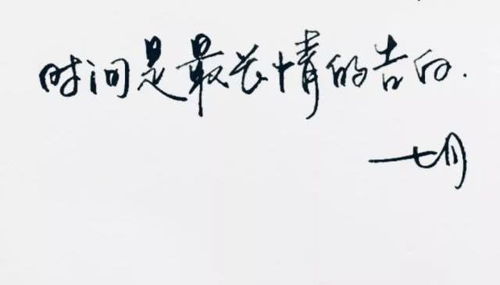 时间是最长情的告白.
——七月